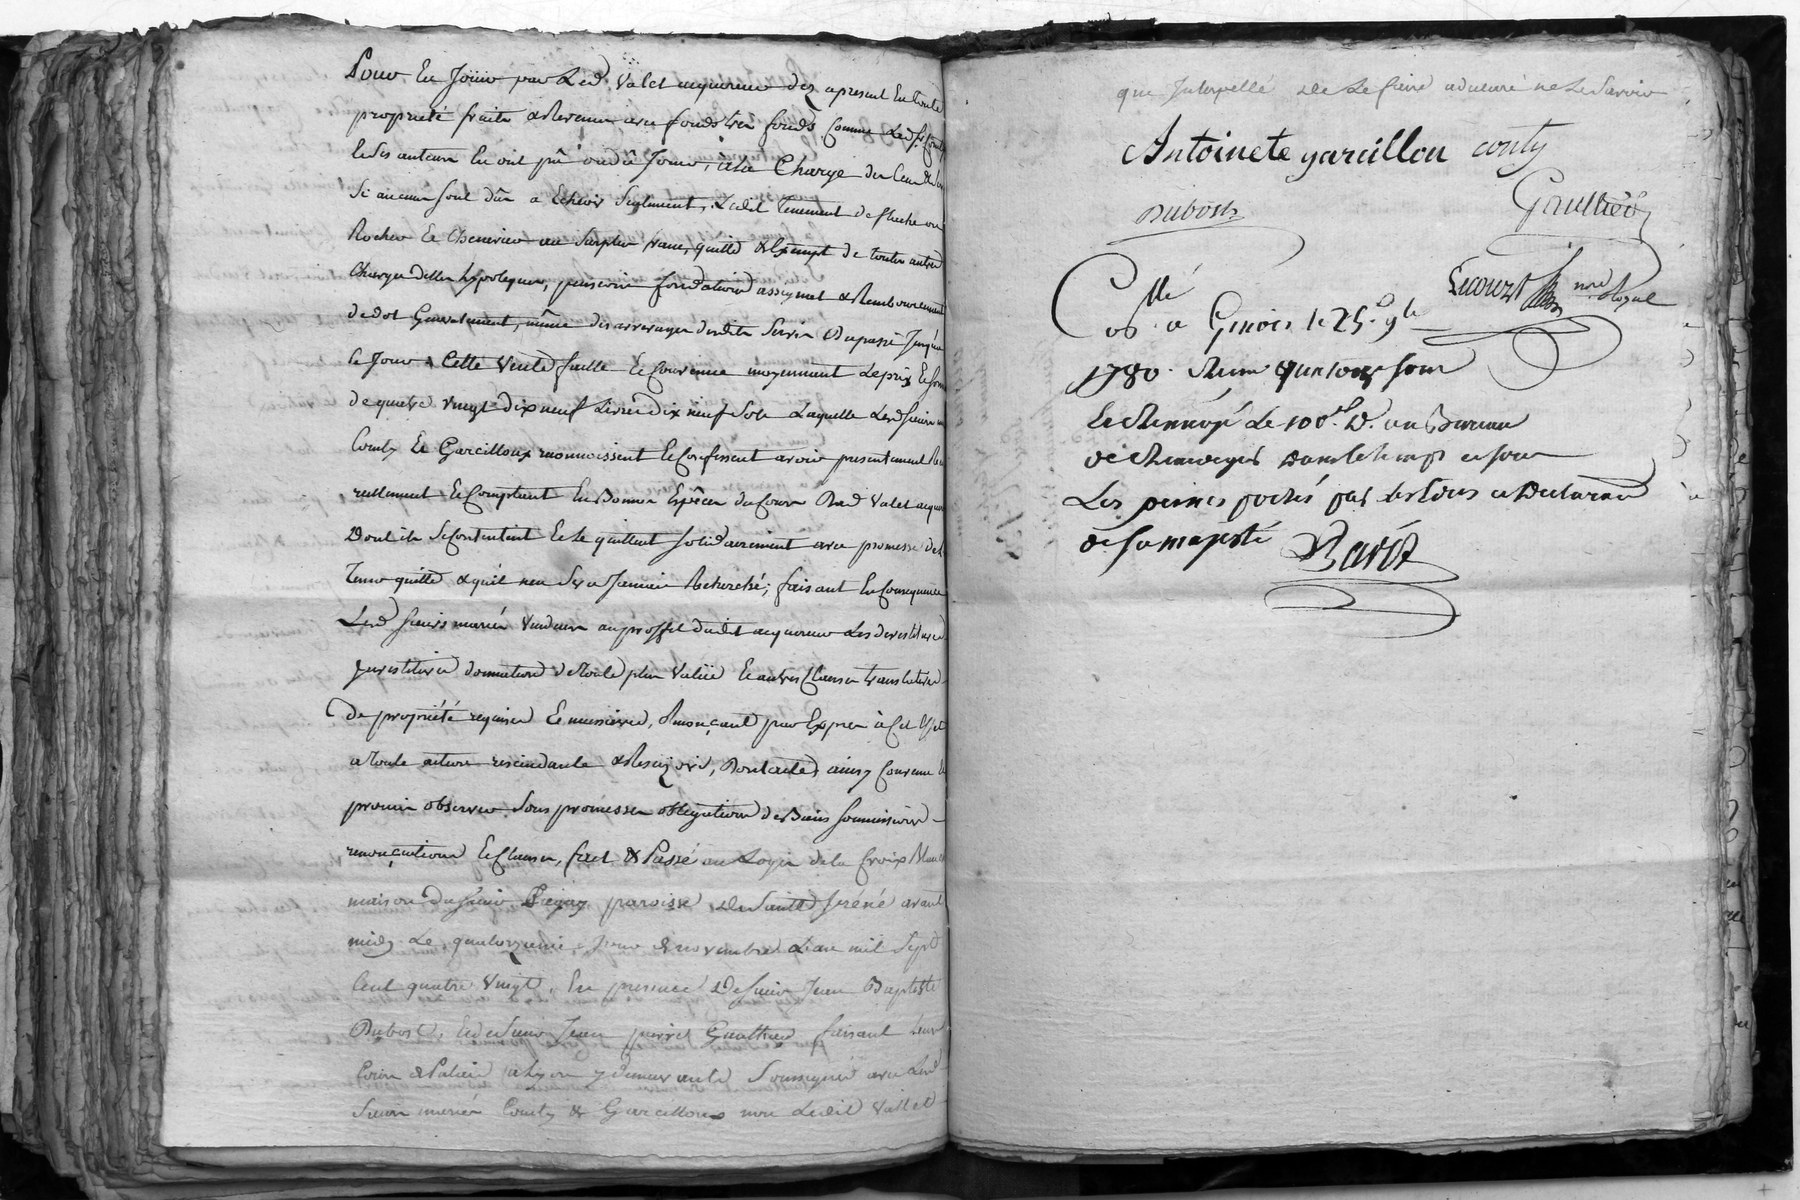 Pour En Jouir par Led. Valet acquereur dez apresent En toute
propriété fruits & Revenus avec fonds tres fonds Comme Led. Sr. Conty
Et Ses auteurs En ont pû ou dû Jouir, à la Charge du Cens &
Si aucuns sont dûs a Echoir Seulement, Ledit Tenement de
Rocher Et Chenevier au Surplus franc, quitte & Exempt de toutes autres
Charges dettes hypoteques, pensions fondations assignat & Remboursement
de dot Generalement, même des arrerages desdits Servis Dupassé Jusqua
Ce Jour. Cette Vente faitte Et Convenue moyennant Le prix Et Somme
de quatre Vingt Dix neuf Livres Dix neuf Sols Laquelle Lesd. Sieurs
Conty Et Garcilloux reconnoissent Et Confessent avoir presentement Reçu
reellement Et Comptant En Bonnes Espéces du Cours Dud. Valet acquereur
Dont ils Se Contentent Et Le quittent solidairement avec promesse de L
Tenir quitte & qu'il n'en Sera Jamais Recherché; faisant En Consequence
Lesd. Sieurs mariés Vendeurs au proffit dudit acquereur Les devestitures
Investitures donnations de toute plus Value Et autres Clauses translatives
De propriété requises Et necessaires, Renonçant par Exprès à Cet Effet
a Toute action rescindante & Rescizoire, Dont acte, ainsy Convenu &
promis observer Sous promesses obligations de Biens Soummissions
renonçiations Et Clauses, fait & Passé au Logis de la Croix Blanche
maison du Sieur paroisse De Saint Iréné avant
midy Le quatorzieme Jour de novembre L'an mil Sept
Cent quatre Vingt, En presence De Sieur Jean Baptiste
Dubost, Et de Sieur Jean pierre Gaulthier faisant Leur
Cours de Palais a Lyon y demeurants Soussignés avec Lesd.
Sieurs mariés Conty & Garcilloux non Ledit Vallet
que Interpellé De Le faire a declaré ne Le Savoir
Antoinete garcillou conty
Dubost
Gaulthier
Lecourt nre Royal
Collé
8bre a Givois le 25. 9bre
1780. Recu quatorze sous
Et Renvoyé Le 100e. D. au Bureau
de dans le temps et sous
Les peines portés par les Edits et Declarations
de sa majesté